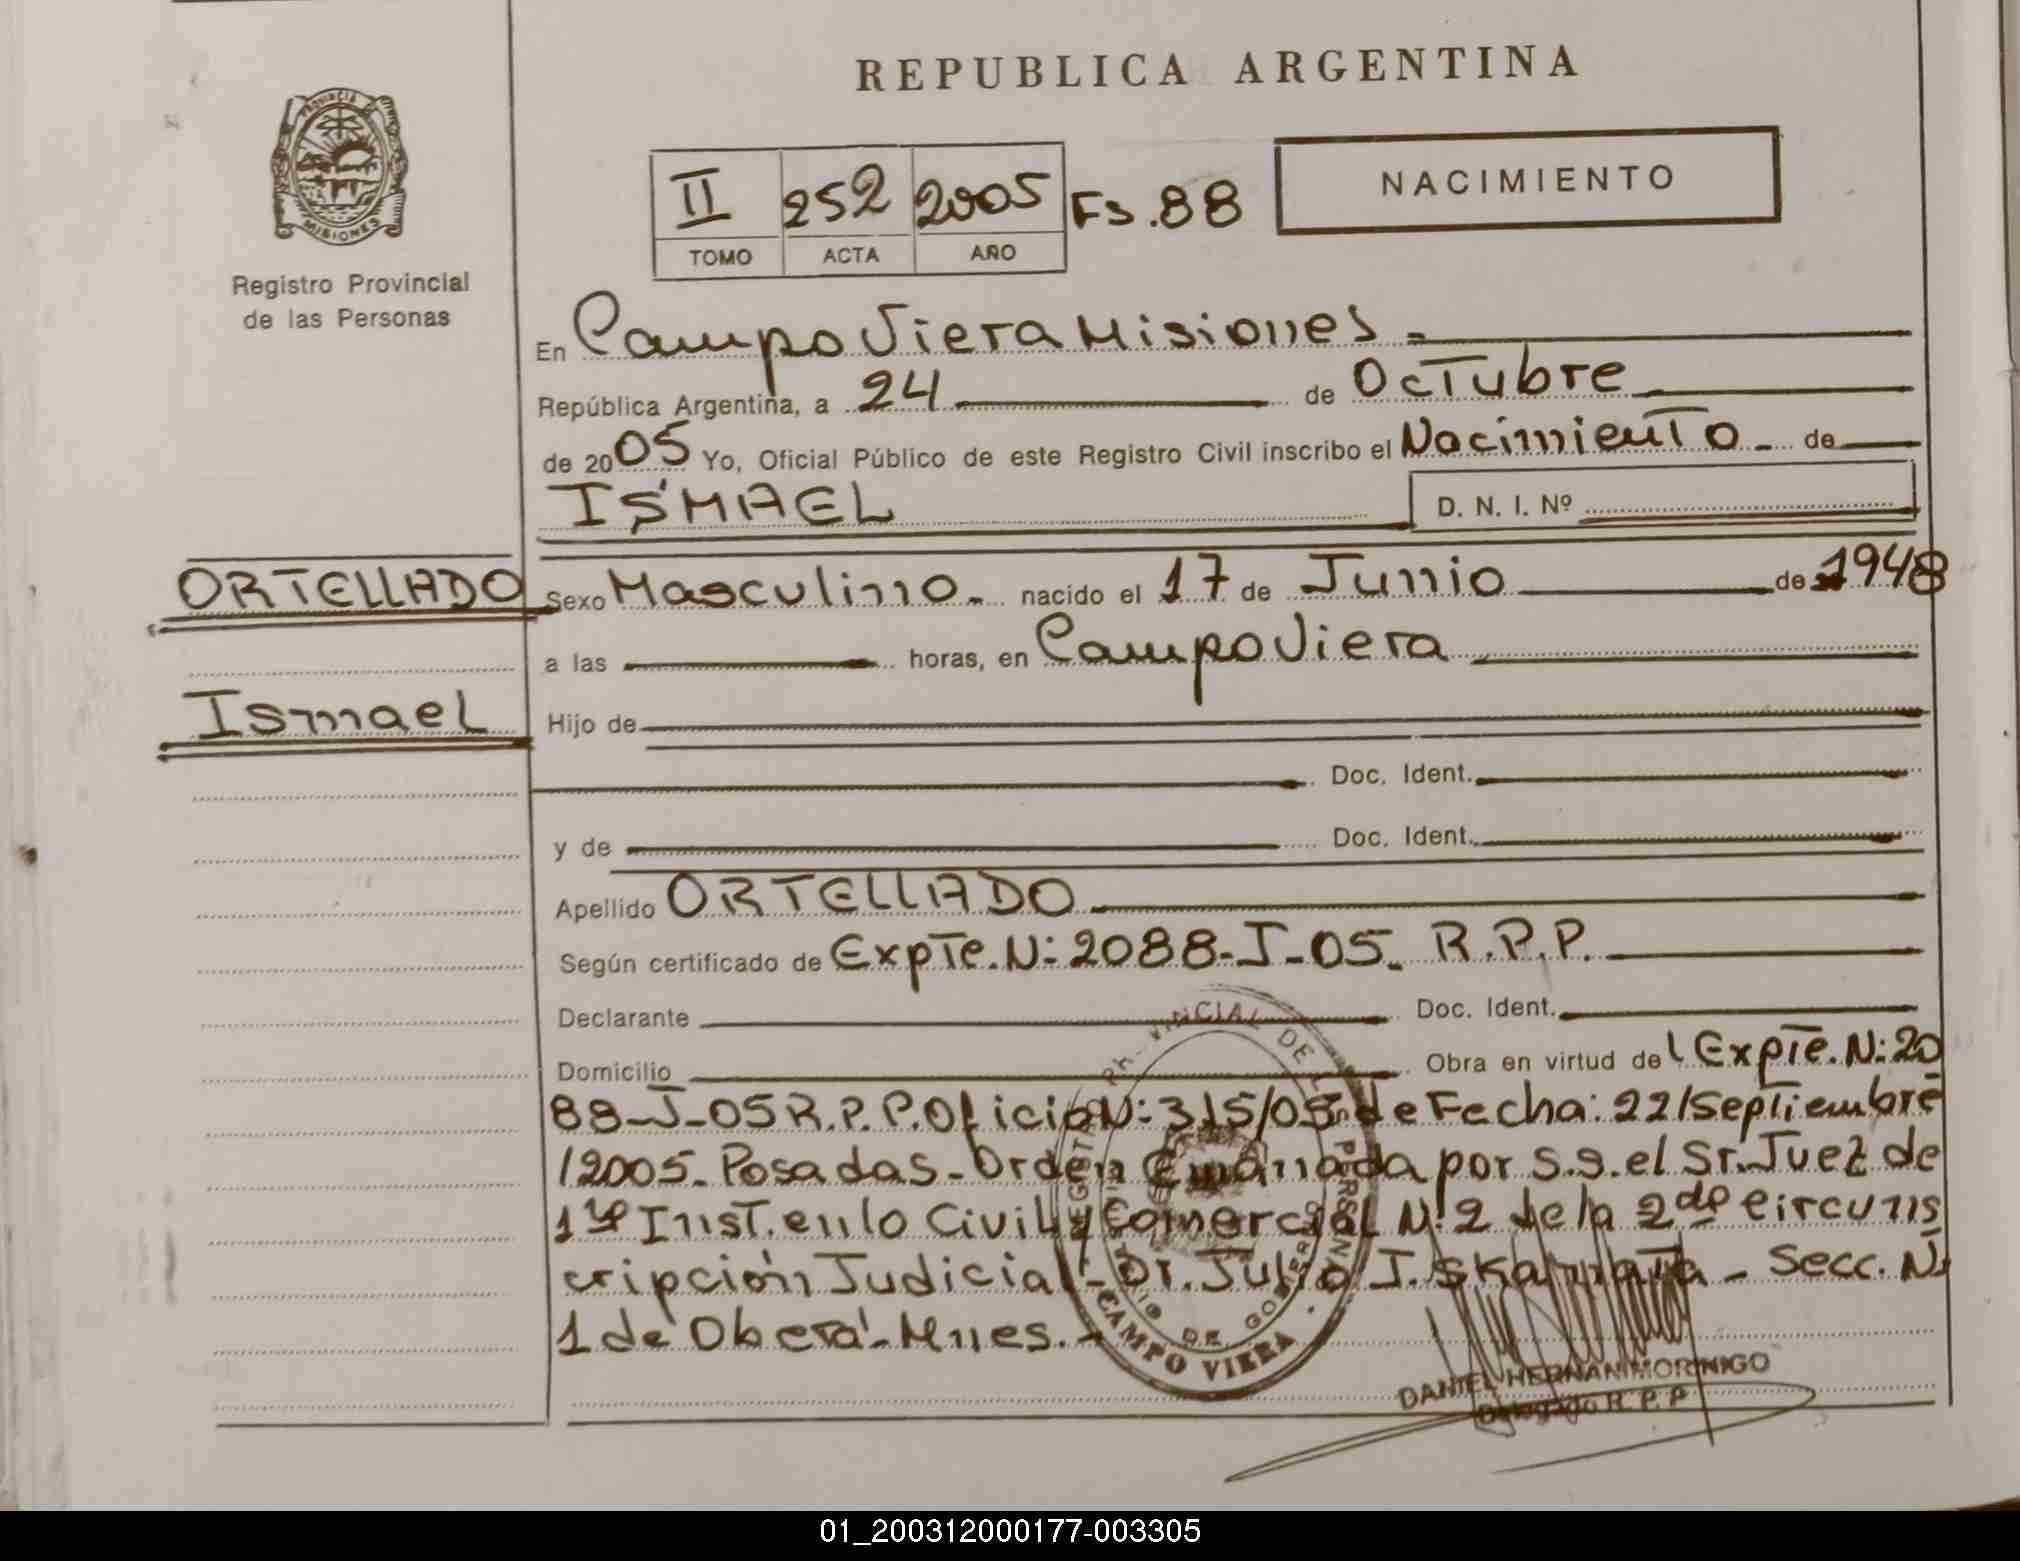 REPUBLICA ARGENTINA
PROVINCIA
MISIONES
Registro Provincial
de las Personas
II 252 2005 Fs. 88
TOMO ACTA AÑO
NACIMIENTO
En Campo Viera Misiones -
República Argentina, a 24 de Octubre
de 2005 Yo, Oficial Público de este Registro Civil inscribo el Nacimiento - de
ISMAEL D. N. I. Nº
ORTELLADO
Sexo Masculino - nacido el 17 de Junio de 1948
a las horas, en Campo Viera
Ismael
Hijo de
Doc. Ident.
y de Doc. Ident.
Apellido ORTELLADO
Según certificado de Expte. N: 2088-J-05- R.P.P.
Declarante Doc. Ident.
Domicilio Obra en virtud del Expte. N: 20
88-J-05 R.P.P. Oficio N: 315/05 de Fecha: 22/Septiembre
/2005- Posadas- Orden Emanada por S.S. el Sr. Juez de
1ra Inst. en lo Civil y Comercial N: 2 de la 2da circuns
cripción Judicial- Dr. Julio I. - Secc. N:
1 de Oberá- Mnes. -
CAMPO VIERA
DANIEL HERNAN MORINIGO
Delegado R.P.P.
01_200312000177-003305